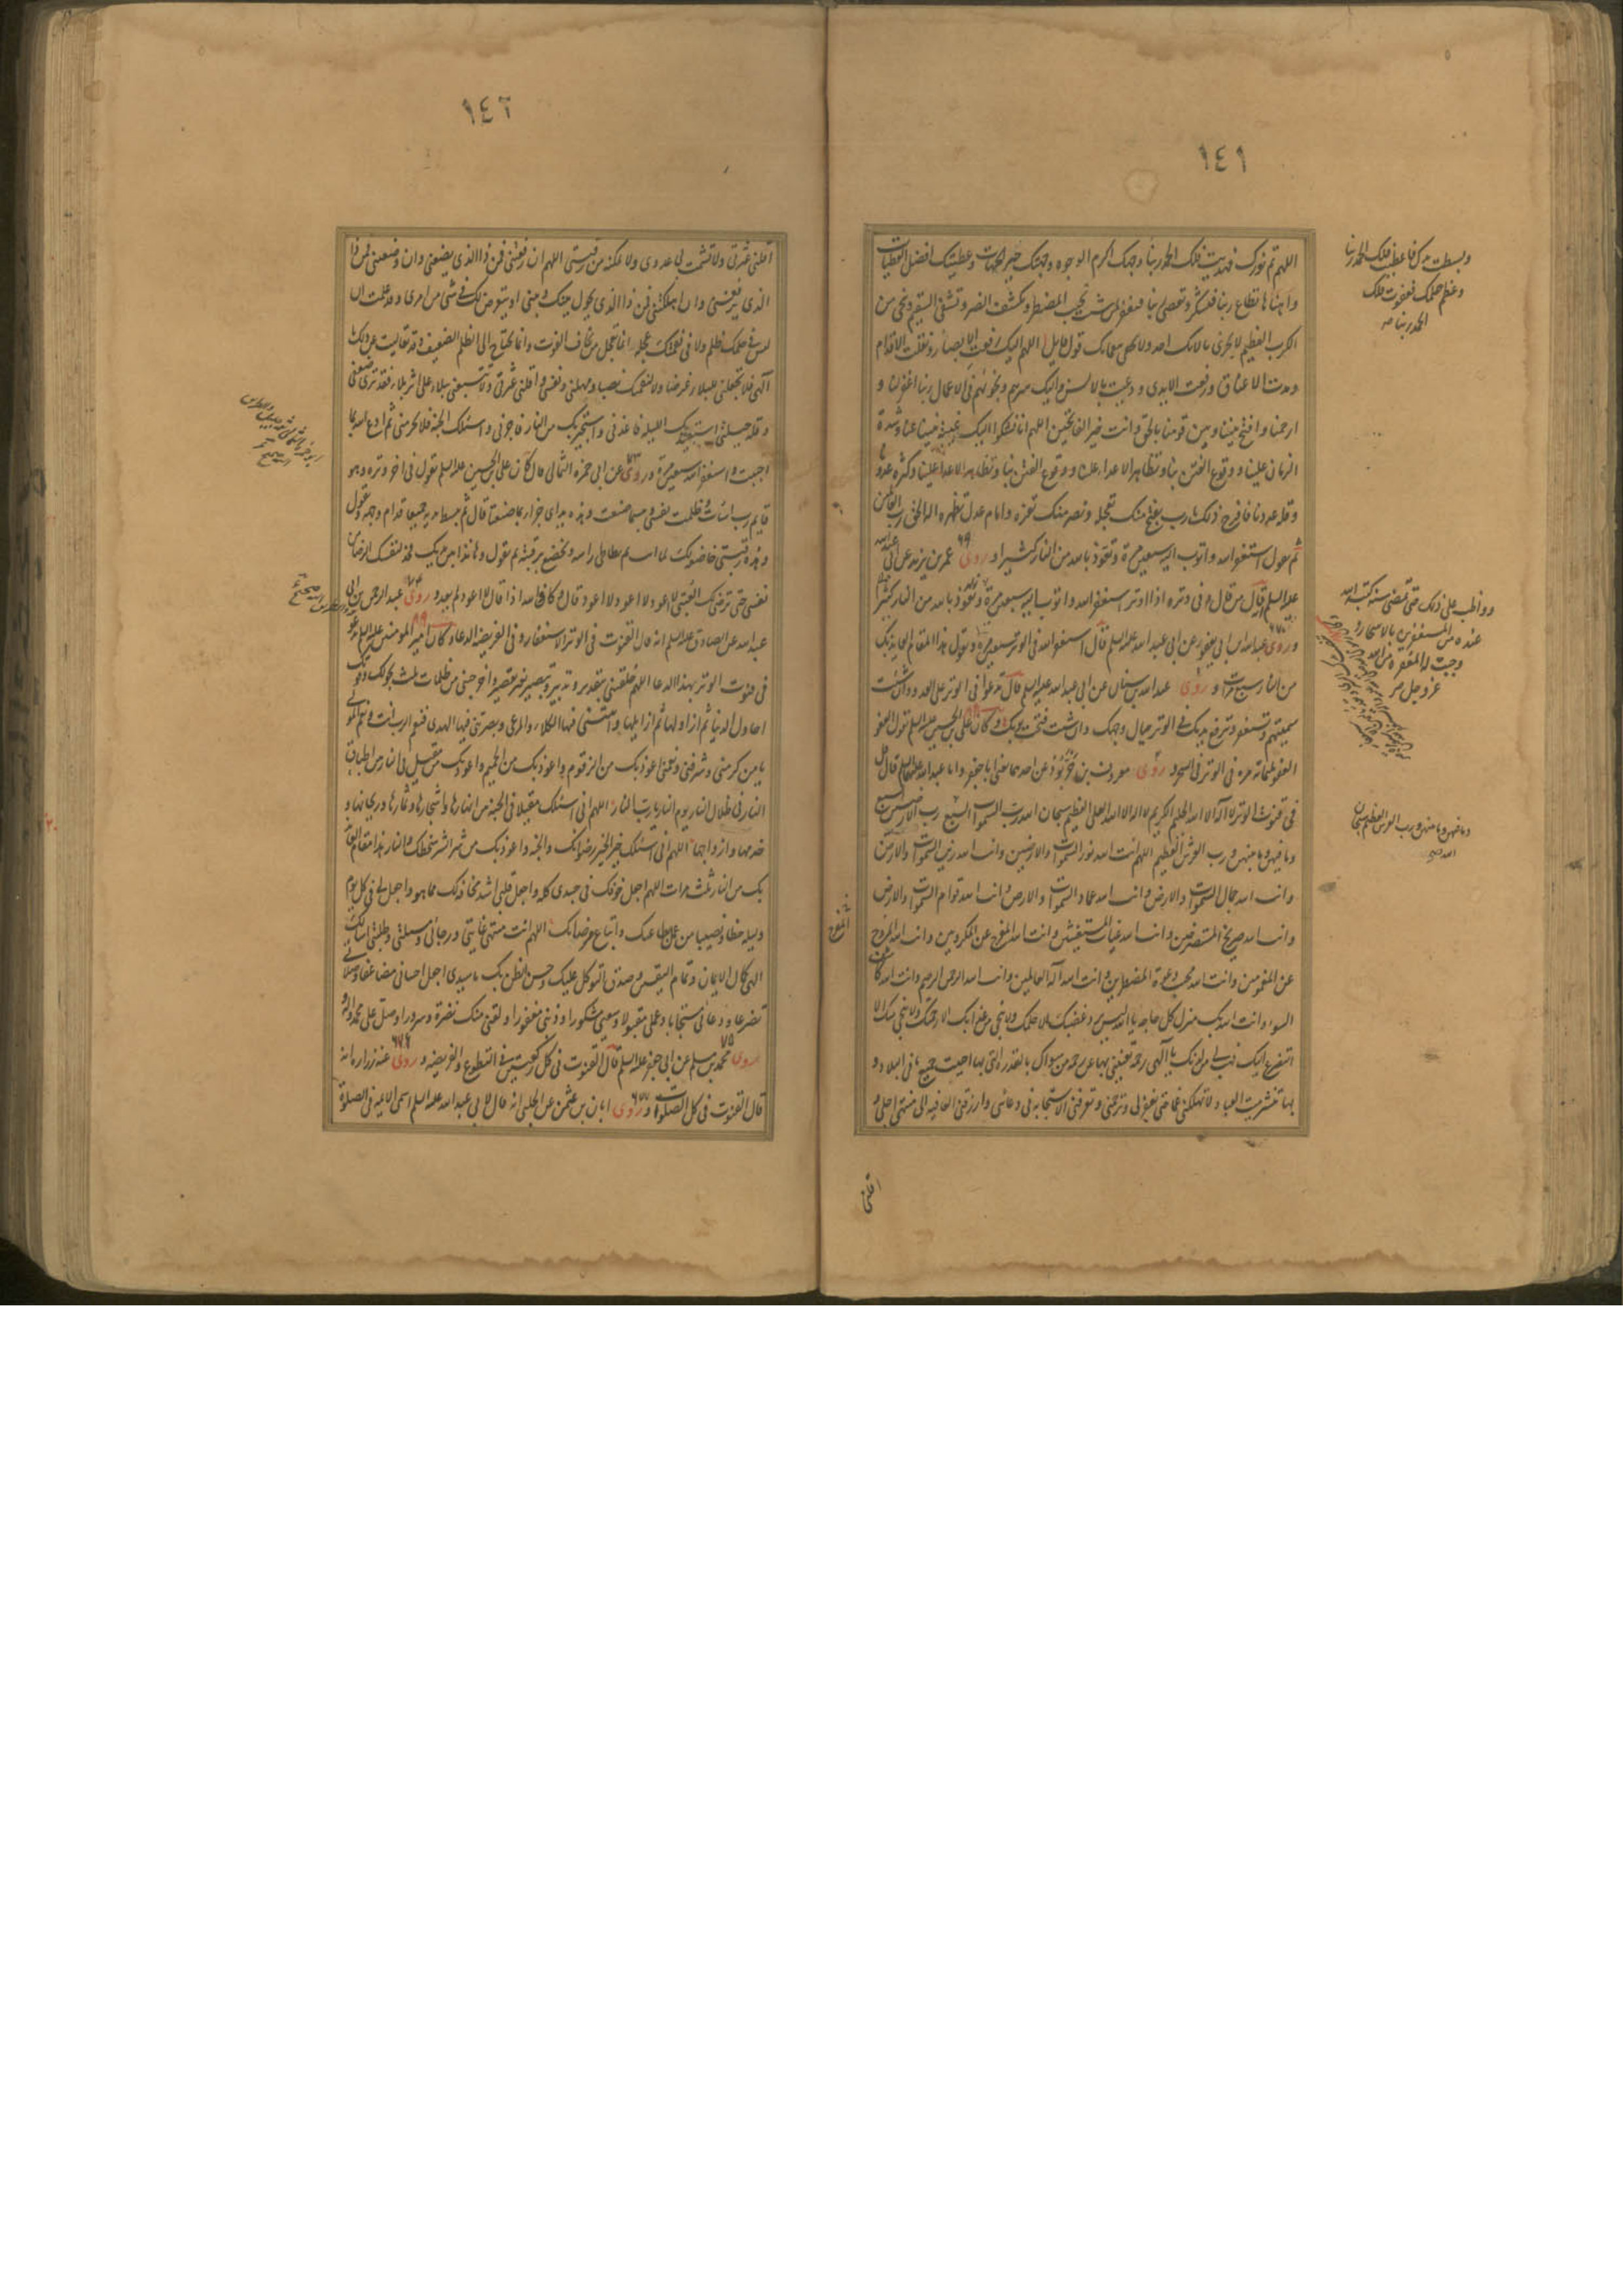 ١٤١
اللهم تم نورك فهديت فلك الحمد ربنا وجهك اكرم الوجوه وجهتك خير الجهات وعطيتك افضل العطيات
واهناها تطاع ربنا فتشكر وتعصى ربنا فتغفر لمن شئت تجيب المضطر وتكشف الضر وتشفي السقيم وتنجي من
الكرب العظيم لا يجزى بآلائك احد ولا يحصي نعمائك قول قايل اللهم اليك رفعت الابصار ونقلت الاقدام
ومدت الاعناق ورفعت الايدي ودعيت بالالسن واليك سرهم ونجويهم في الاعمال ربنا اغفر لنا و
ارحمنا وافتح بيننا وبين قومنا بالحق وانت خير الفاتحين اللهم انا نشكوا اليك غيبة نبينا عنا وشدة
الزمان علينا ووقوع الفتن بنا وتظاهر الاعداء علينا وكثرة عدونا
وقلة عددنا فافرج ذلك يا رب بفتح منك تعجله ونصر منك تعزه وامام عدل تظهره اله الحق رب العالمين
ثم تقول استغفر الله واتوب اليه سبعين مرة وتعوذ بالله من النار كثيرا و روى عمر بن يزيد عن ابي عبد الله
عليه السلم انه قال من قال في وتره اذا اوتر استغفر الله واتوب اليه سبعين مرة
و روى عبد الله بن ابي يعفور عن ابي عبد الله عليه السلم قال استغفر الله في الوتر سبعين مرة وتقول هذا المقام العايذ بك
من النار سبع مرات و روى عبد الله بن سنان عن ابي عبد الله عليه السلم قال تدعوا في الوتر على العدو وان شئت
سميتهم وتستغفر وترفع يديك في الوتر حيال وجهك وان شئت فتحت ثوبك وكان علي بن الحسين عليه السلم يقول العفو
العفو ثلثمائة مرة في الوتر في السحر و روى معروف بن خربوذ عن احدهما يعني ابا جعفر وابا عبد الله عليهما السلم قال قل
في قنوت الوتر لا اله الا الله الحليم الكريم لا اله الا الله العلي العظيم سبحان الله رب السموات السبع ورب الارضين السبع
وما فيهن وما بينهن ورب العرش العظيم اللهم انت الله نور السموات والارضين وانت الله زين السموات والارض
وانت الله جمال السموات والارض وانت الله عماد السموات والارض وانت الله قوام السموات والارض
وانت الله صريخ المستصرخين وانت الله غياث المستغيثين وانت الله المفرج عن المكروبين وانت الله المروح
عن المغمومين وانت الله مجيب دعوة المضطرين وانت الله اله العالمين وانت الله الرحمن الرحيم وانت الله كاشف
السوء وانت الله بك منزل كل حاجة يا الله ليس يرد غضبك الا حلمك ولا ينجي من عذابك الا رحمتك ولا ينجي منك الا
التضرع اليك فهب لي من لدنك يا الهي رحمة تغنيني بها عن رحمة من سواك بالقدرة التي بها احييت جميع ما في البلاد و
بها تنشر ميت العباد ولا تهلكني غما حتى تغفر لي وترحمني وتعرفني الاستجابة في دعائي وارزقني العافية الى منتهى اجلي و
وبسطت يدك فاعطيت فلك الحمد ربنا
وعظم حلمك فعفوت فلك
الحمد ربنا
وواظب على ذلك حتى تمضي سنة كتبه الله
عنده من المستغفرين بالاسحار و
وجبت له المغفرة من الله
عز وجل
وما فيهن وما بينهن ورب العرش العظيم سبحان
الله
المفرج
اقلني
١٤٢
اقلني عثرتي ولا تشمت بي عدوي ولا تمكنه من رقبتي اللهم ان رفعتني فمن ذا الذي يضعني وان وضعتني فمن ذا
الذي يرفعني وان اهلكتني فمن ذا الذي يحول بينك وبيني او يتعرض لك في شئ من امري وقد علمت ان
ليس في حكمك ظلم ولا في نقمتك عجلة انما يعجل من يخاف الفوت وانما يحتاج الى الظلم الضعيف وقد تعاليت عن ذلك يا
الهي فلا تجعلني للبلاء غرضا ولا لنقمتك نصبا ومهلني ونفسني واقلني عثرتي ولا تتبعني ببلاء على اثر بلاء فقد ترى ضعفي
وقلة حيلتي استعيذ بك الليلة فاعذني واستجير بك من النار فاجرني واسئلك الجنة فلا تحرمني ثم ادع الله بما
احببت واستغفر الله سبعين مرة وروى عن ابي حمزة الثمالي قال كان علي بن الحسين عليه السلم يقول في اخر وتره وهو
قايم رب اسأت وظلمت نفسي وبئسما صنعت وهذه يداي جزاء بما صنعتا قال ثم يبسط يديه جميعا قدام وجهه ويقول
وهذه رقبتي خاضعة لك لما اتت قال ثم يطاطي راسه ويخضع برقبته ثم يقول وها انا ذا بين يديك فخذ لنفسك الرضا من
نفسي حتى ترضى لك العتبى لا اعود لا اعود لا اعود قال وكان والله اذا قال لا اعود لم يعد و روى عبد الرحمن بن ابي
عبد الله عن الصادق عليه السلم انه قال القنوت في الوتر الاستغفار وفي الفريضة الدعاء وكان امير المؤمنين عليه السلم يدعو
في قنوت الوتر بهذا الدعاء اللهم خلقتني بتقدير وتدبير وتبصير بغير تقصير واخرجتني من ظلمات ثلث بحولك وقوتك
احاول الدنيا ثم ازاولها ثم ازايلها واتيتني فيها الكلاء والمرعى وبصرتني فيها الهدى فنعم الرب انت ونعم المولى
يا من كرمني وشرفني ونعمني اعوذ بك من الزقوم واعوذ بك من الحميم واعوذ بك من مقيل في النار بين اطباق
النار في ظلال النار يوم النار يا رب النار اللهم اني اسئلك مقيلا في الجنة بين انهارها واشجارها وثمارها وريحانها و
خدمها وازواجها اللهم اني اسئلك خير الخير رضوانك والجنة واعوذ بك من شر الشر سخطك والنار هذا مقام العايذ
بك من النار ثلث مرات اللهم اجعل خوفك في جسدي كله واجعل قلبي اشد مخافة لك مما هو واجعل لي في كل يوم
وليلة حظا ونصيبا من عمل بطاعتك واتباع مرضاتك اللهم انت منتهى غايتي ورجائي ومسئلتي وطلبتي اسئلك
الهي كمال الايمان وتمام اليقين وصدق التوكل عليك وحسن الظن بك يا سيدي اجعل احساني مضاعفا وصلاتي
تضرعا ودعائي مستجابا وعملي مقبولا وسعيي مشكورا وذنبي مغفورا ولقني منك نضرة وسرورا وصل على محمد واله و
روى محمد بن مسلم عن ابي جعفر عليه السلم قال القنوت في كل ركعتين في التطوع والفريضة و روى عنه زرارة انه
قال القنوت في كل الصلوات وروى ابان بن عثمن عن الحلبي انه قال لابي عبد الله عليه السلم اسمي الائمة في الصلوة